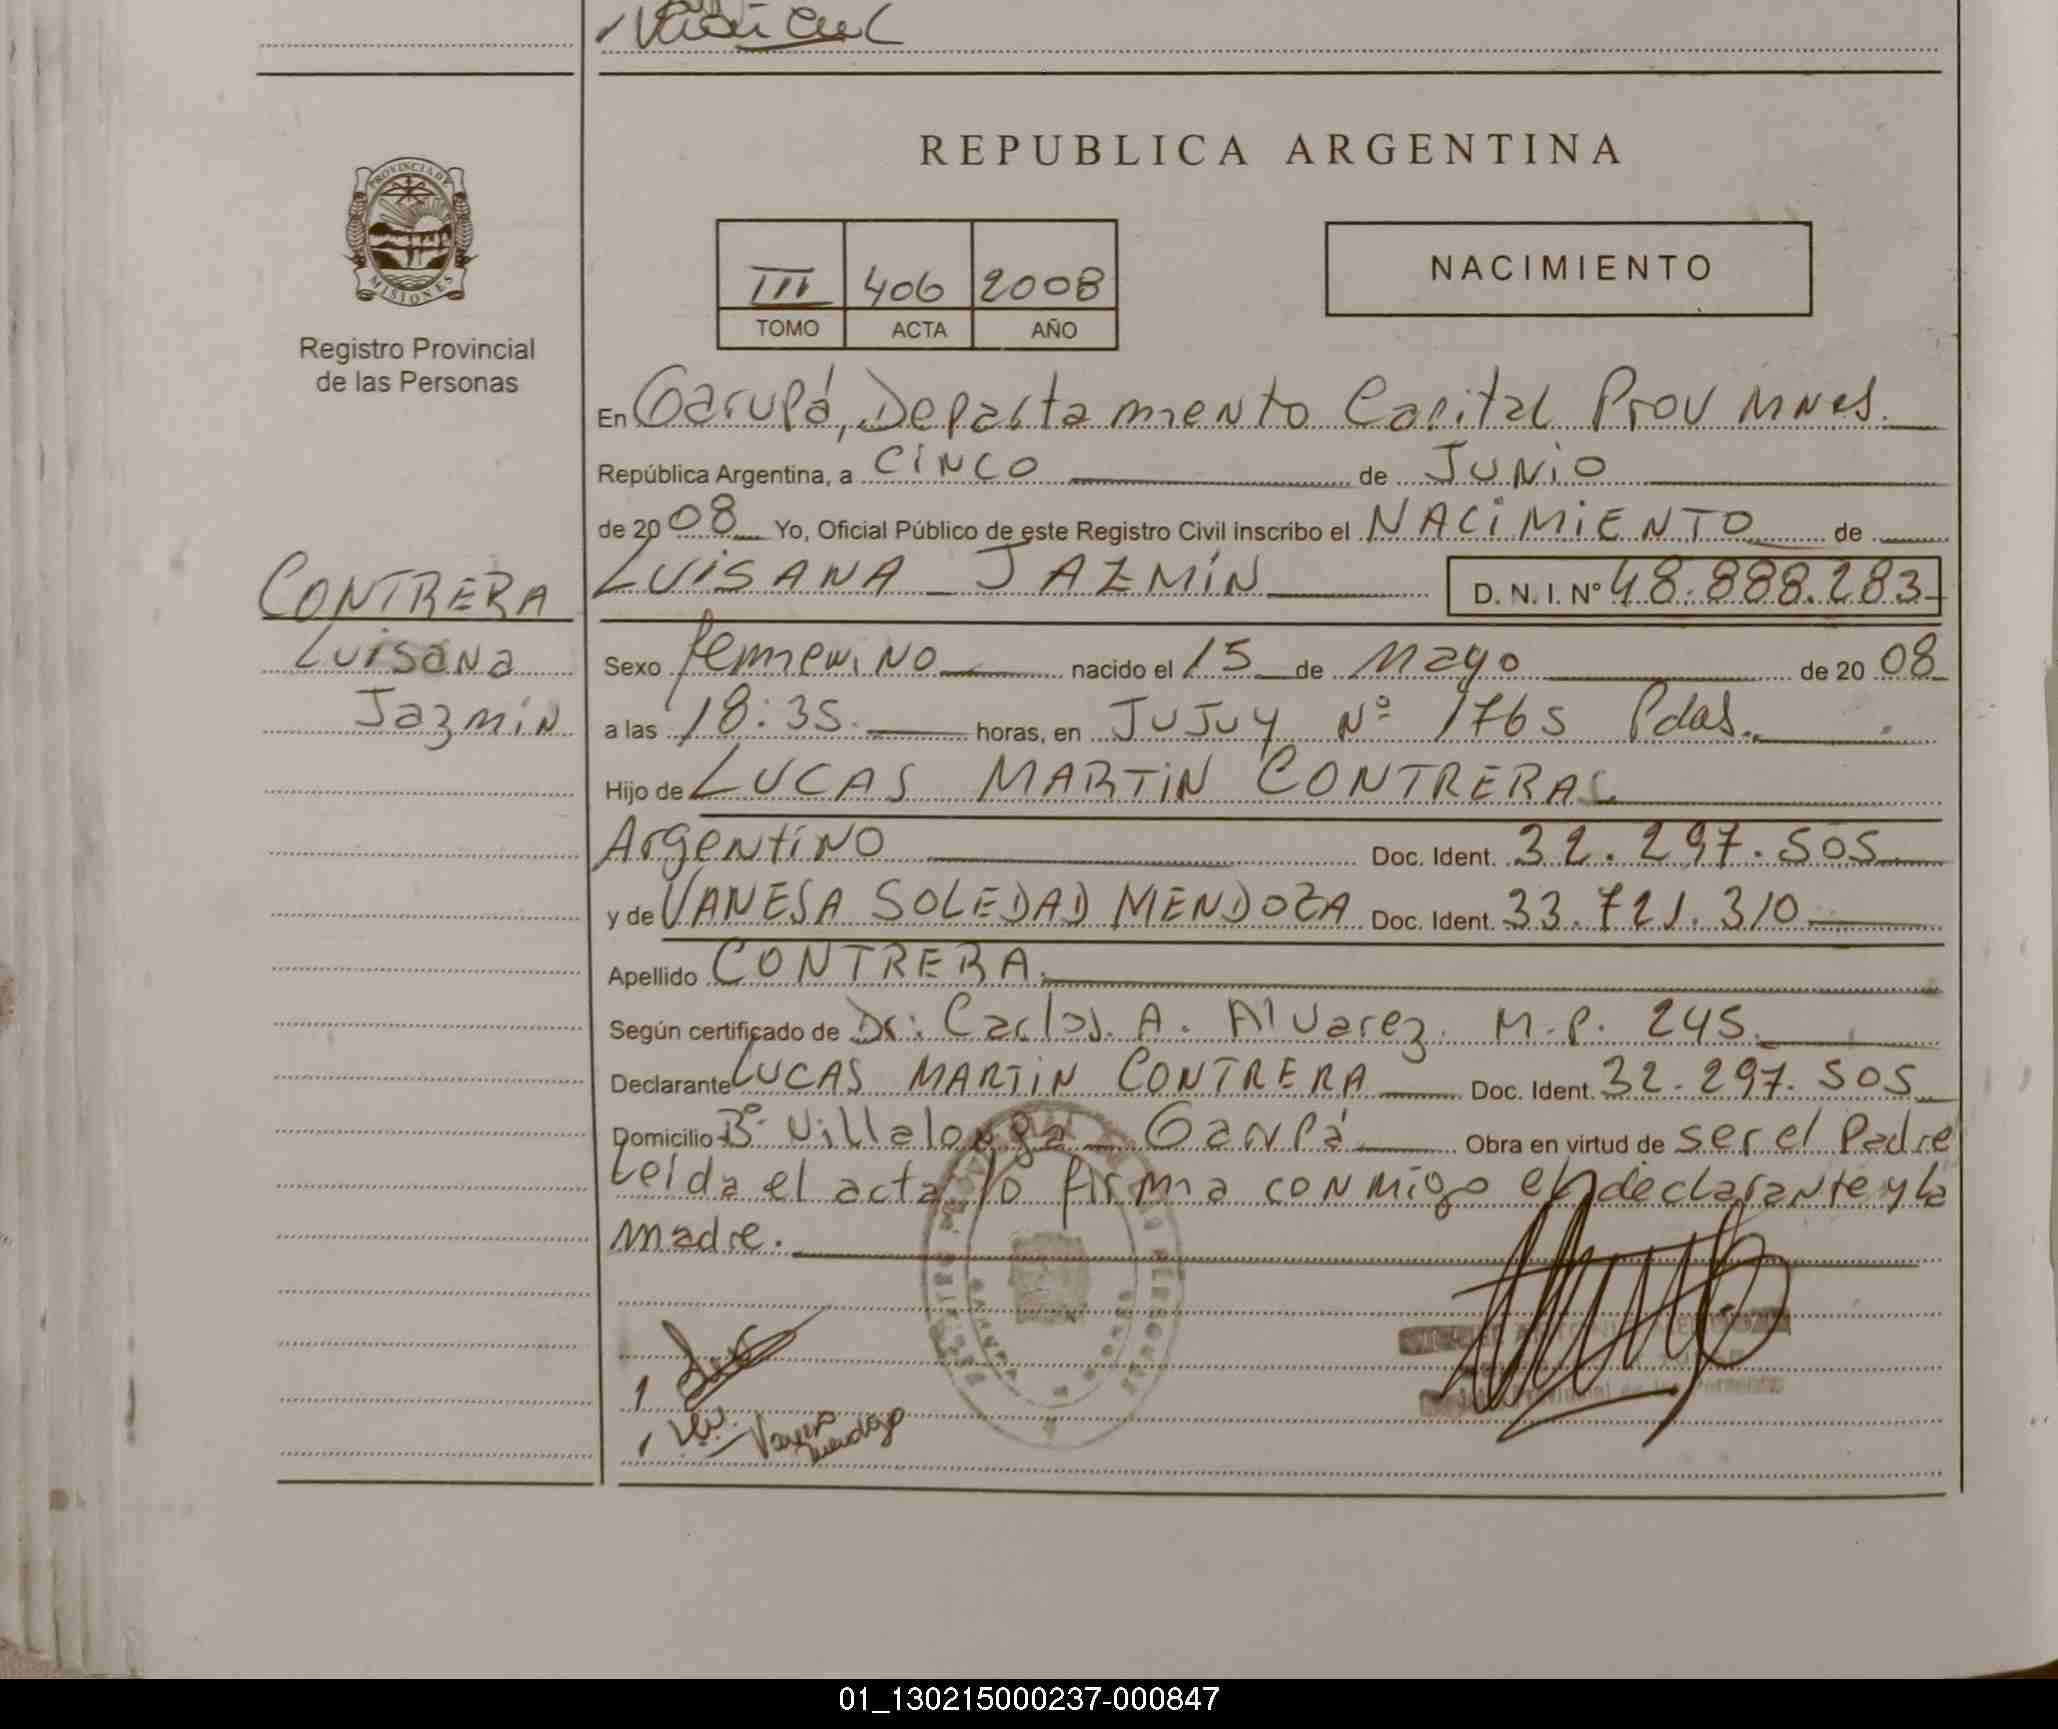 REPUBLICA ARGENTINA
PROVINCIA DE
MISIONES
Registro Provincial
de las Personas
III 406 2008
TOMO ACTA AÑO
NACIMIENTO
En Garupá, Departamento Capital Prov Mnes.
República Argentina, a CINCO de JUNIO
de 2008 Yo, Oficial Público de este Registro Civil inscribo el NACIMIENTO de
LUISANA JAZMÍN D. N. I. Nº 48.888.283
CONTRERA
Luisana
Jazmín
Sexo femenino nacido el 15 de Mayo de 20 08
a las 18:35. horas, en JUJUY Nº 1765 Pdas.
Hijo de LUCAS MARTIN CONTRERA
Argentino Doc. Ident. 32.297.505
y de VANESA SOLEDAD MENDOZA Doc. Ident. 33.721.310
Apellido CONTRERA.
Según certificado de Dr: Carlos. A. Alvarez. M.P. 245.
Declarante LUCAS MARTIN CONTRERA Doc. Ident. 32.297.505
Domicilio Bº Villalonga – Garupá Obra en virtud de ser el Padre
Leída el acta lo firma conmigo el declarante y la
madre.
Vanesa
Mendoza
01_130215000237-000847